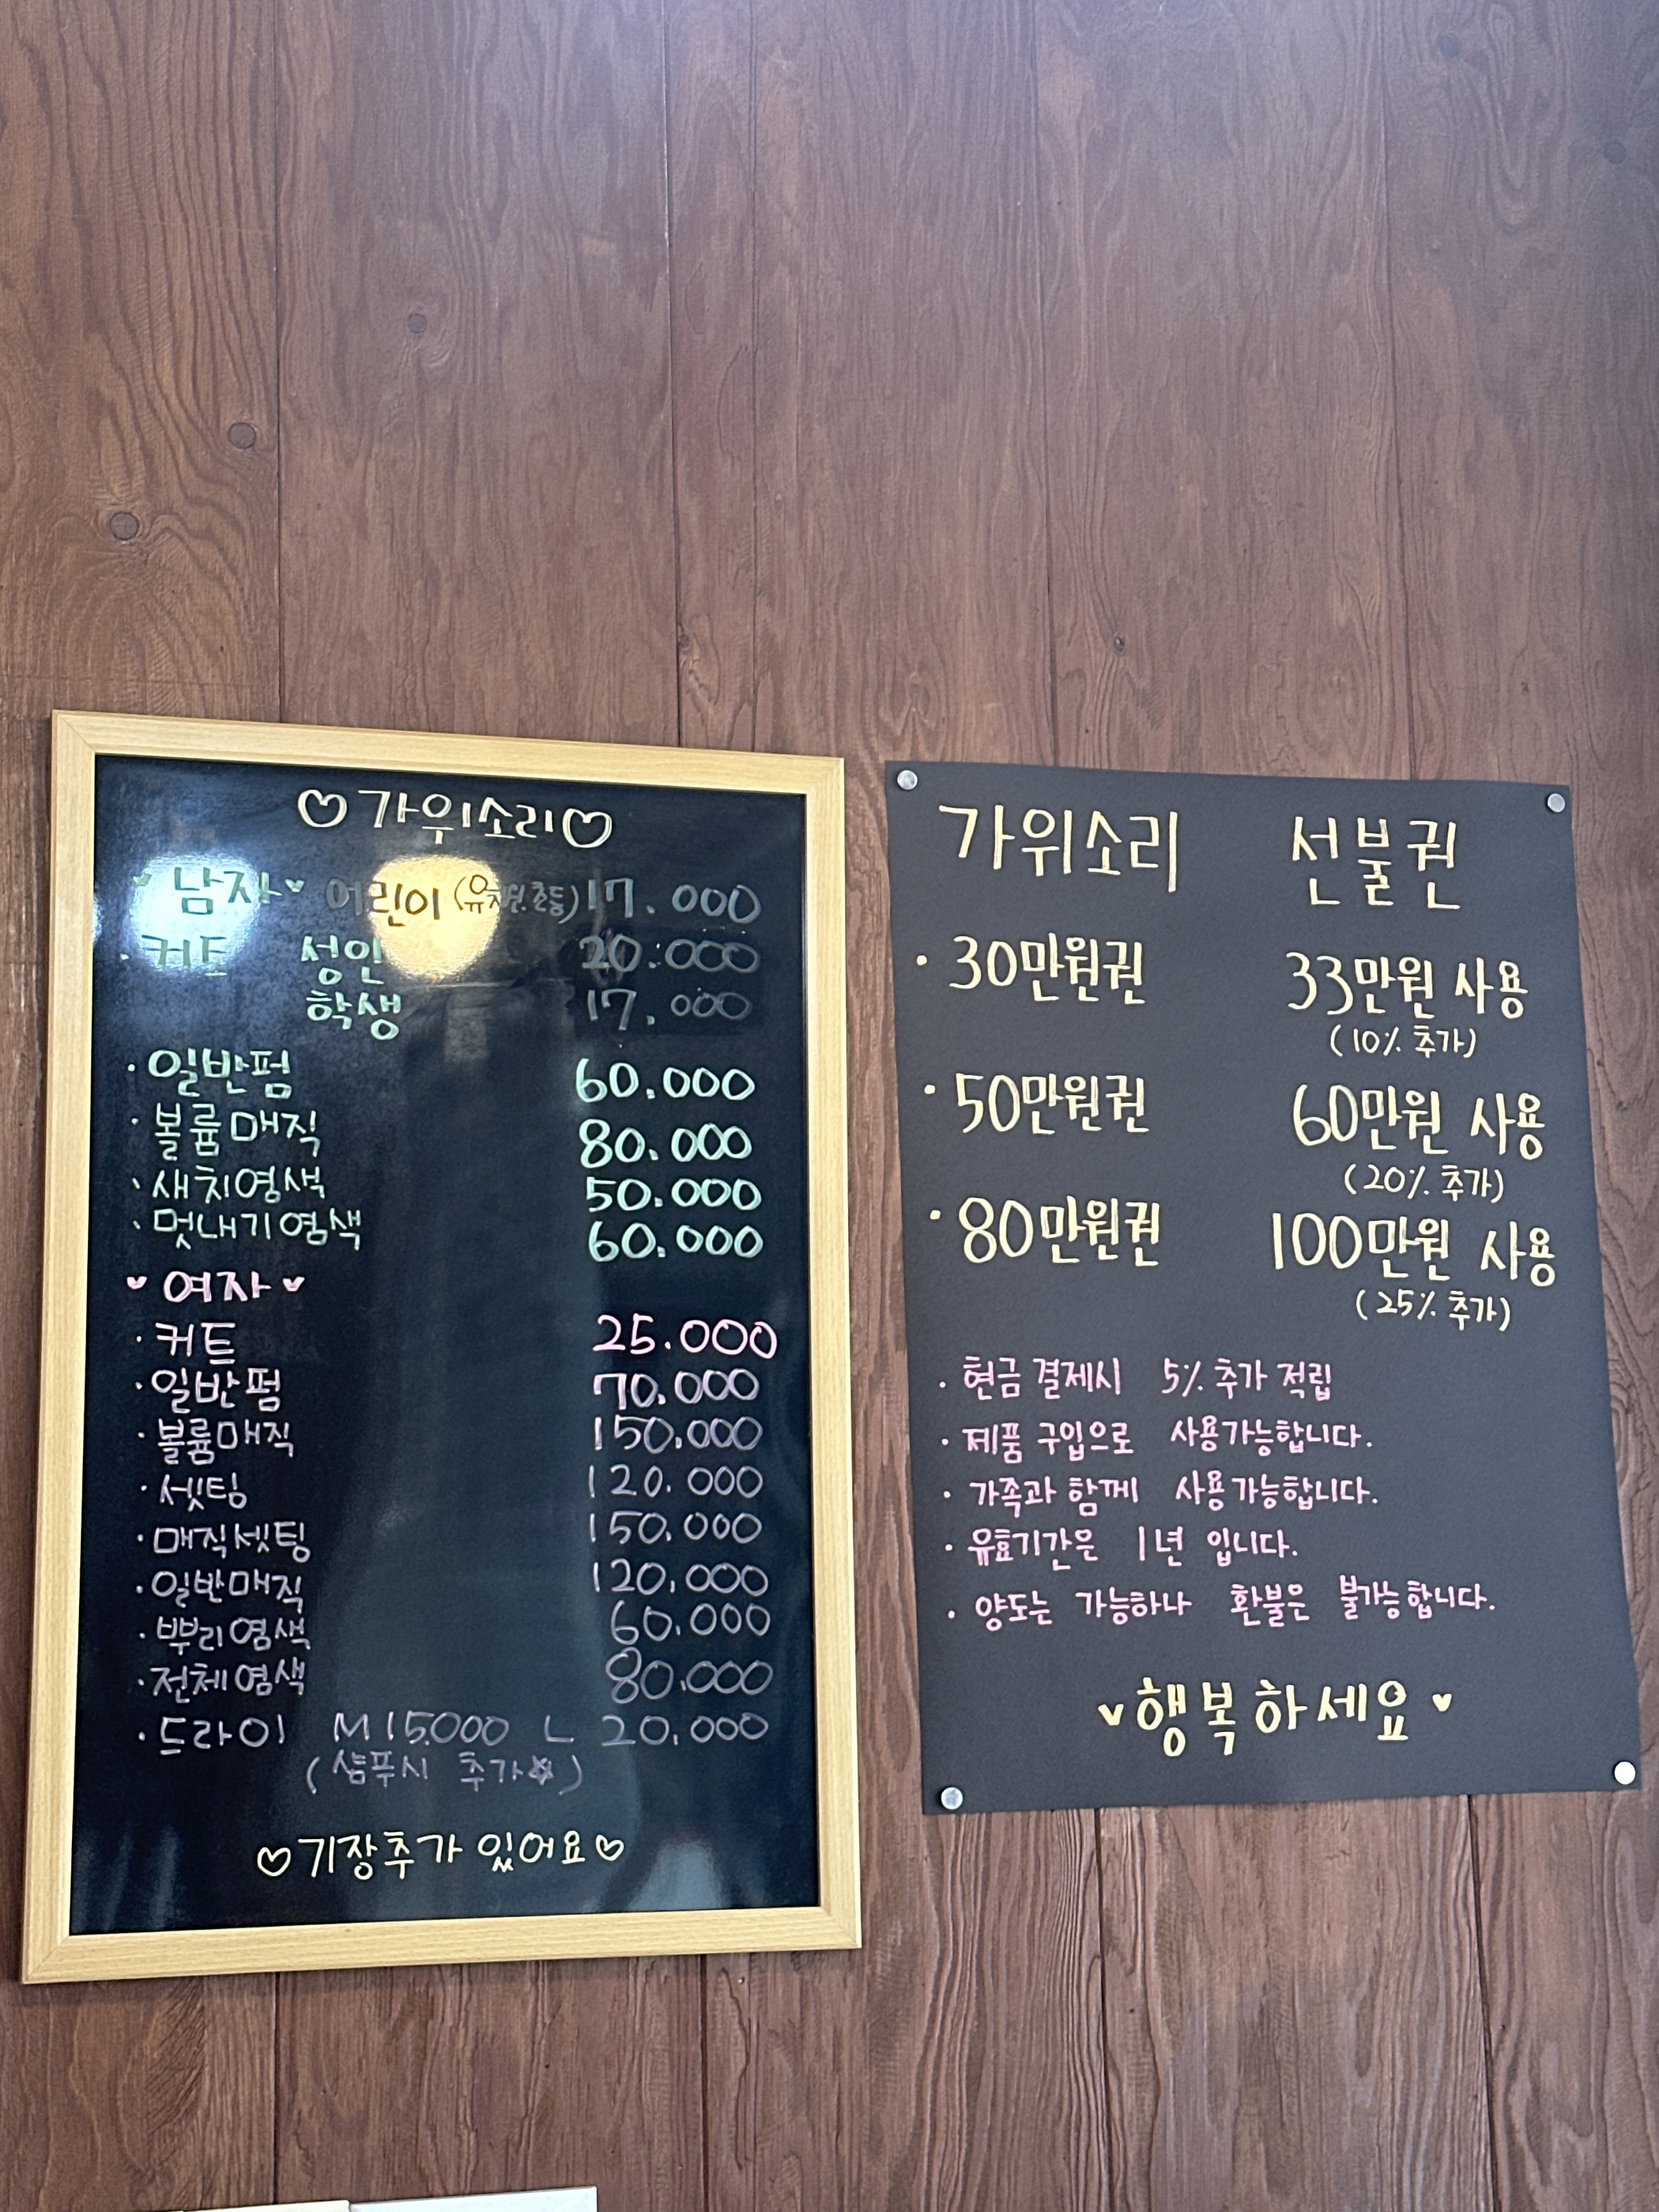 ♡가위소리♡
남자 어린이 (유치원.초등) 17.000
· 커트 성인 20.000
학생 17.000
· 일반펌 60.000
· 볼륨매직 80.000
· 새치염색 50.000
· 멋내기염색 60.000
♥ 여자 ♥
· 커트 25.000
· 일반펌 70.000
· 볼륨매직 150.000
· 셋팅 120.000
· 매직셋팅 150.000
· 일반매직 120.000
· 뿌리염색 60.000
· 전체염색 80.000
· 드라이 M 15.000 L 20.000
(샴푸시 추가☆)
♡기장추가 있어요♡
가위소리 선불권
· 30만원권 33만원 사용
(10% 추가)
· 50만원권 60만원 사용
(20% 추가)
· 80만원권 100만원 사용
(25% 추가)
· 현금 결제시 5% 추가 적립
· 제품 구입으로 사용가능합니다.
· 가족과 함께 사용가능합니다.
· 유효기간은 1년 입니다.
· 양도는 가능하나 환불은 불가능합니다.
♥행복하세요♥